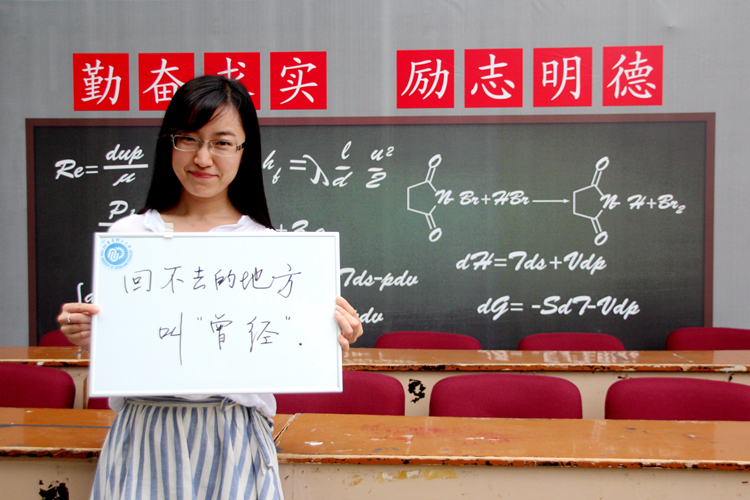 勤奋求实 励志明德
Re=dup/μ
h f =λ l/d u²/2
N-Br+HBr → N-H+Br₂
dH=Tds+Vdp
Tds-pdv
dG= -SdT-Vdp
回不去的地方
叫"曾经".